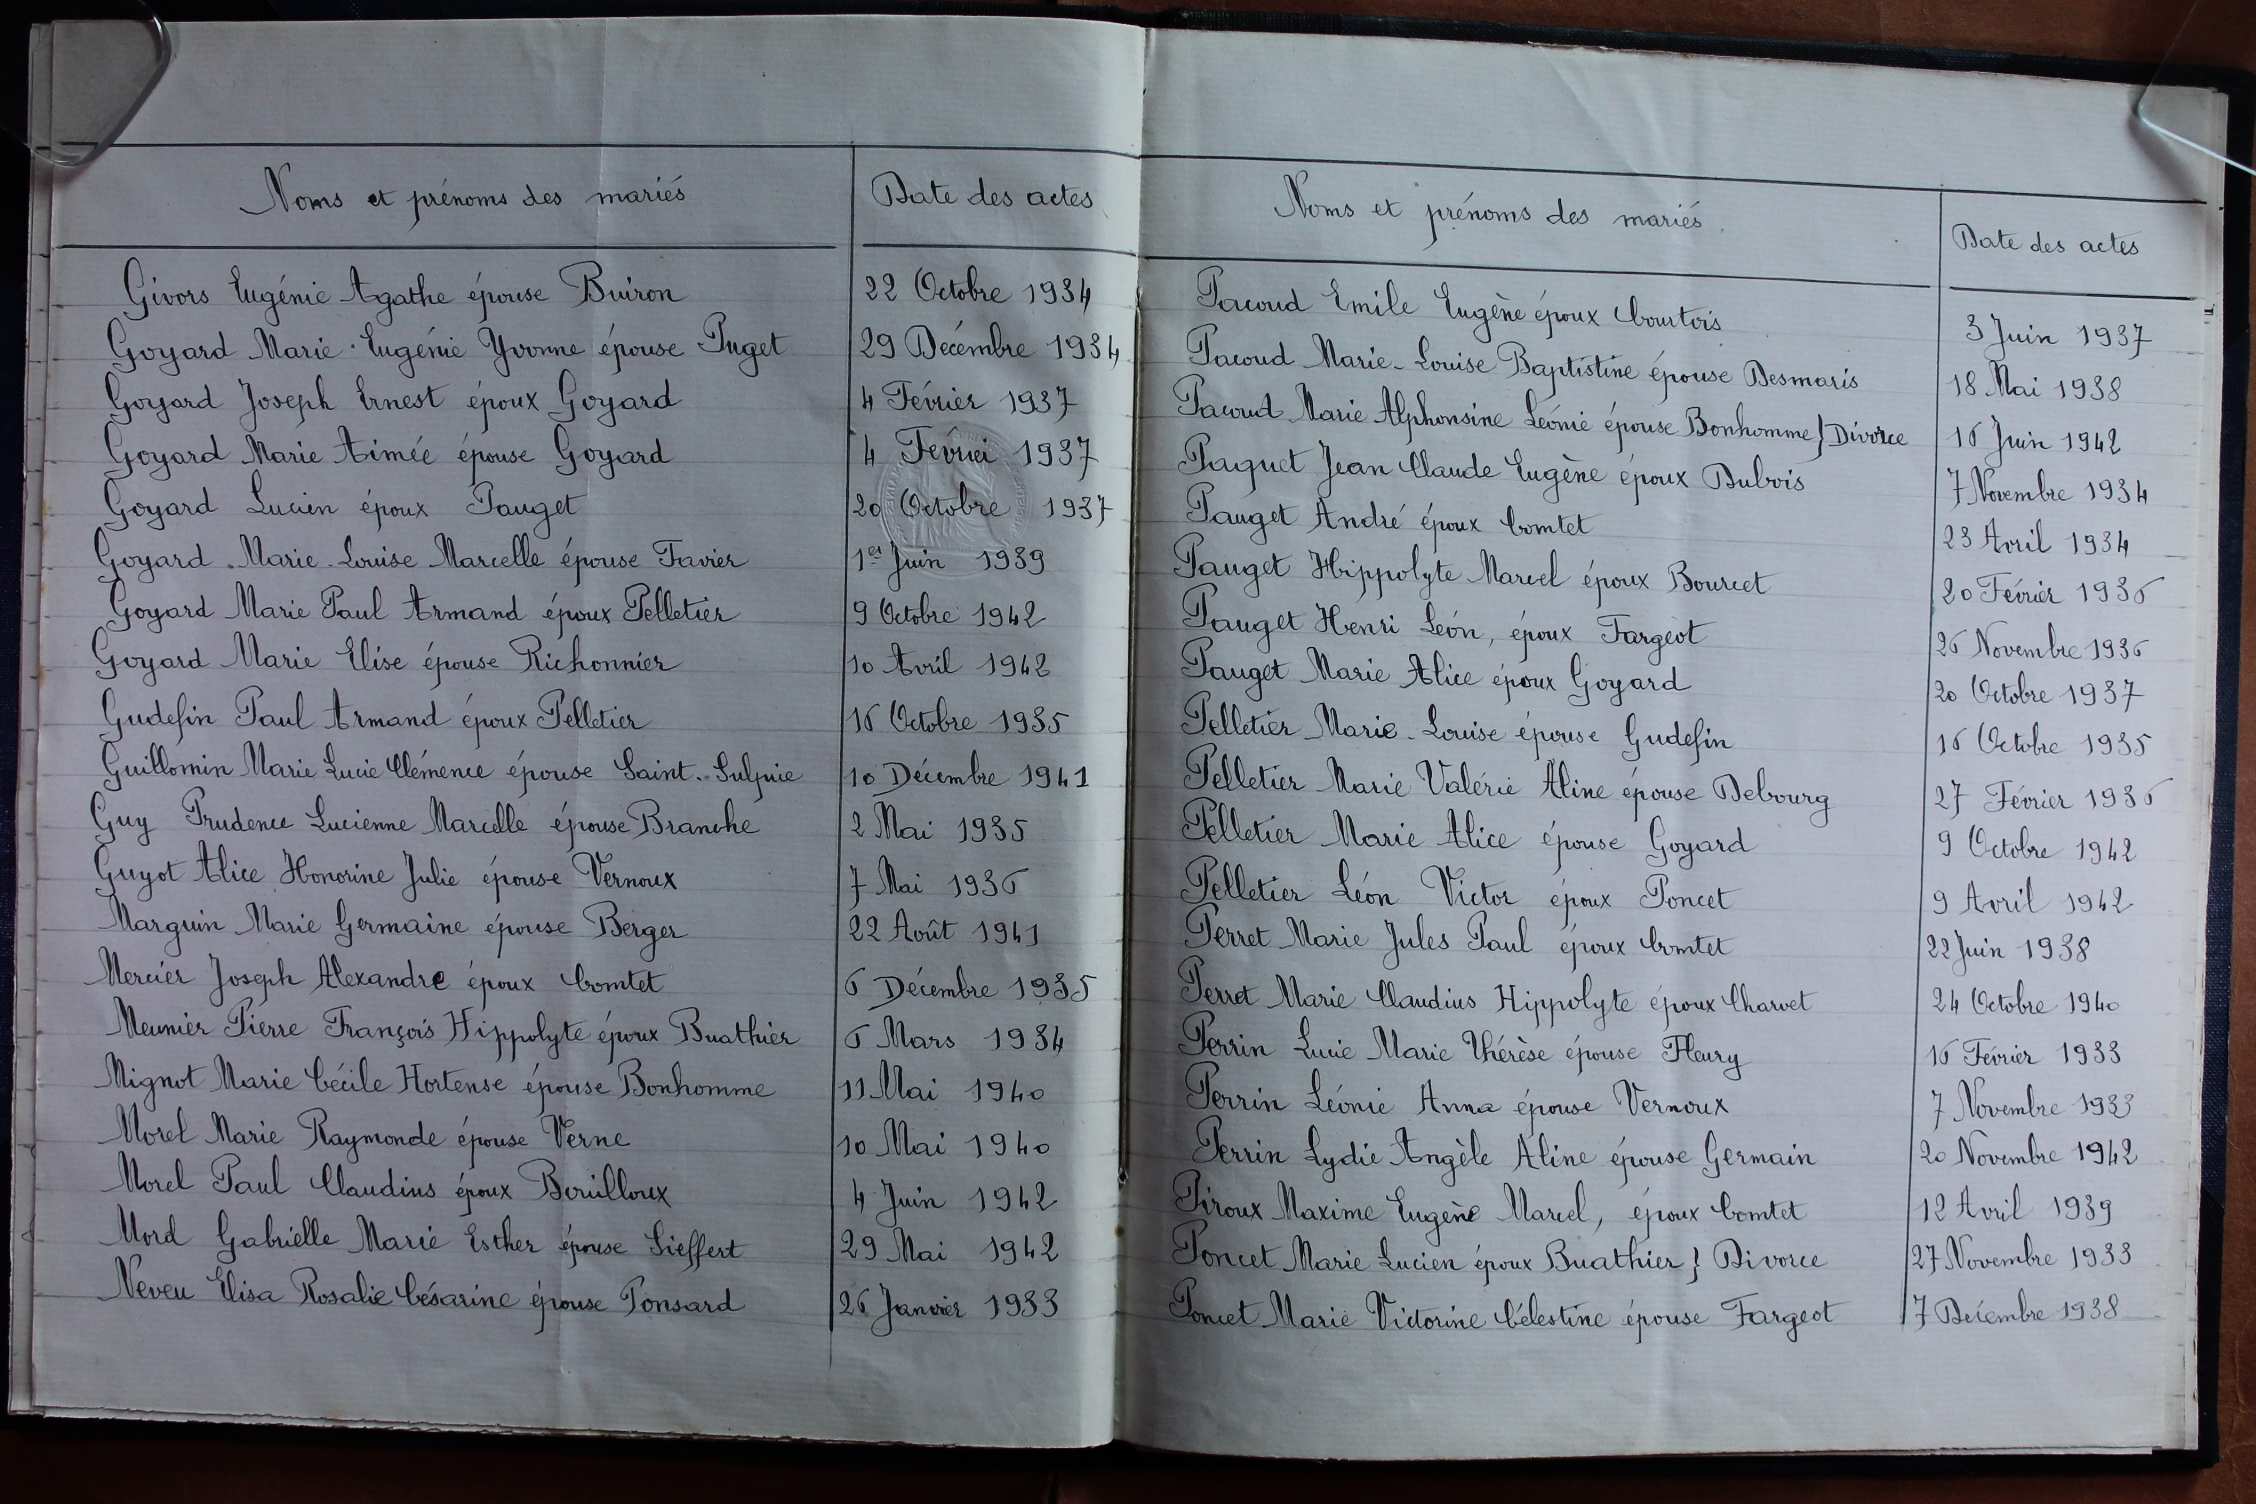 Noms et prénoms des mariés Date des actes
Givors Eugénie Agathe épouse Buiron 22 Octobre 1934
Goyard Marie-Eugénie Yvonne épouse Puget 29 Décembre 1934
Goyard Joseph Ernest époux Goyard 4 Février 1937
Goyard Marie Aimée épouse Goyard 4 Février 1937
Goyard Lucien époux Pauget 20 Octobre 1937
Goyard Marie-Louise Marcelle épouse Favier 1er Juin 1939
Goyard Marie Paul Armand époux Pelletier 9 Octobre 1942
Goyard Marie Elise épouse Richonnier 10 Avril 1942
Gudefin Paul Armand époux Pelletier 16 Octobre 1935
Guillomin Marie Lucie Clémence épouse Saint-Sulpice 10 Décembre 1941
Guy Prudence Lucienne Marcelle épouse Branche 2 Mai 1935
Guyot Alice Honorine Julie épouse Vernoux 7 Mai 1936
Marguin Marie Germaine épouse Berger 22 Août 1941
Mercier Joseph Alexandre époux Comtet 6 Décembre 1935
Meunier Pierre François Hippolyte époux Buathier 6 Mars 1934
Mignot Marie Cécile Hortense épouse Bonhomme 11 Mai 1940
Morel Marie Raymonde épouse Verne 10 Mai 1940
Morel Paul Claudius époux Bouilloux 4 Juin 1942
Morel Gabrielle Marie Esther épouse Sieffert 29 Mai 1942
Neveu Elisa Rosalie Césarine épouse Ponsard 26 Janvier 1933
Noms et prénoms des mariés Date des actes
Pacoud Emile Eugène époux Courtois 3 Juin 1937
Pacoud Marie-Louise Baptistine épouse Desmaris 18 Mai 1938
Pacoud Marie Alphonsine Léonie épouse Bonhomme } Divorce 16 Juin 1942
Paquet Jean Claude Eugène époux Dubois 7 Novembre 1934
Pauget André époux Comtet 23 Avril 1934
Pauget Hippolyte Marcel époux Bourcet 20 Février 1936
Pauget Henri Léon, époux Fargeot 26 Novembre 1936
Pauget Marie Alice époux Goyard 20 Octobre 1937
Pelletier Marie-Louise épouse Gudefin 16 Octobre 1935
Pelletier Marie Valérie Aline épouse Debourg 27 Février 1936
Pelletier Marie Alice épouse Goyard 9 Octobre 1942
Pelletier Léon Victor époux Poncet 9 Avril 1942
Perret Marie Jules Paul époux Comtet 22 Juin 1938
Perret Marie Claudius Hippolyte époux Charvet 24 Octobre 1940
Perrin Lucie Marie Thérèse épouse Fleury 16 Février 1933
Perrin Léonie Anna épouse Vernoux 7 Novembre 1933
Perrin Lydie Angèle Aline épouse Germain 20 Novembre 1942
Piroux Maxime Eugène Marcel, époux Comtet 12 Avril 1939
Poncet Marie Lucien époux Buathier } Divorce 27 Novembre 1933
Poncet Marie Victorine Célestine épouse Fargeot 7 Décembre 1938